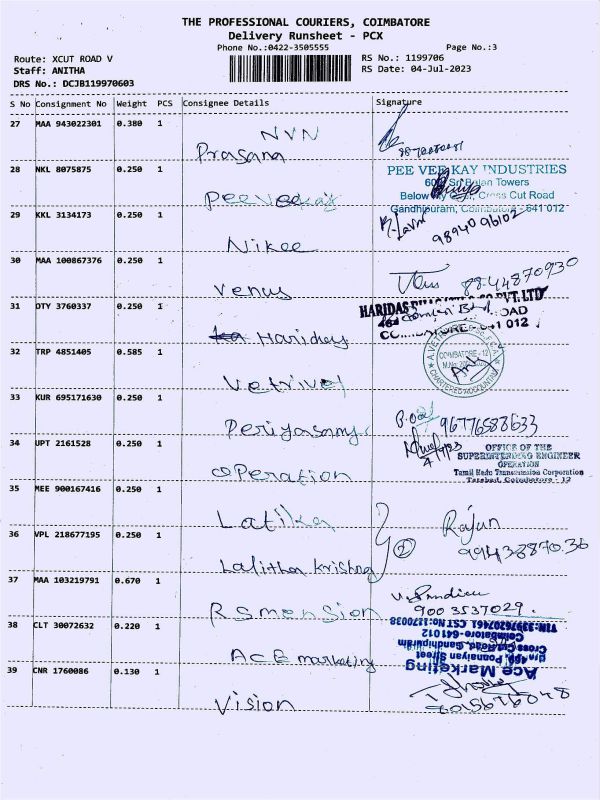 THE PROFESSIONAL COURIERS, COIMBATORE
Delivery Runsheet - PCX
Phone No.:0422-3505555
Page No.:3
Route: XCUT ROAD V
RS No.: 1199706
Staff: ANITHA
RS Date: 04-Jul-2023
DRS No.: DCJB119970603
S No Consignment No Weight PCS Consignee Details Signature
27 MAA 943022301 0.380 1
NVN
Prasana
28 NKL 8075875 0.250 1
PEE VEE KAY INDUSTRIES
Towers
Cross Cut Road
Gandhipuram, Coimbatore - 641 012
29 KKL 3134173 0.250 1
9894096102
Nikee
30 MAA 100867376 0.250 1
Venus
8844870930
31 DTY 3760337 0.250 1
HARIDAS PVT. LTD
012
32 TRP 4851405 0.585 1
COIMBATORE - 12
CHARTERED ACCOUNTANT
Vetrivel
33 KUR 695171630 0.250 1
Periyasamy
96776588633
34 UPT 2161528 0.250 1
OFFICE OF THE
SUPERINTENDING ENGINEER
OPERATION
Tamil Nadu Transmission Corporation
Tatabad, Coimbatore - 12
Operation
35 MEE 900167416 0.250 1
Latika
Rajun
36 VPL 218677195 0.250 1
2
9943887036
Lalitha Krishna
37 MAA 103219791 0.670 1
9003537029.
RS mension
38 CLT 30072632 0.220 1
TIN:33976207461 CST No:1270038
Coimbatore-641012
Cross Cut Road, Gandhipuram
Ponnaiyan Street
Ace Marketing
ACE marketing
39 CNR 1760086 0.130 1
Vision